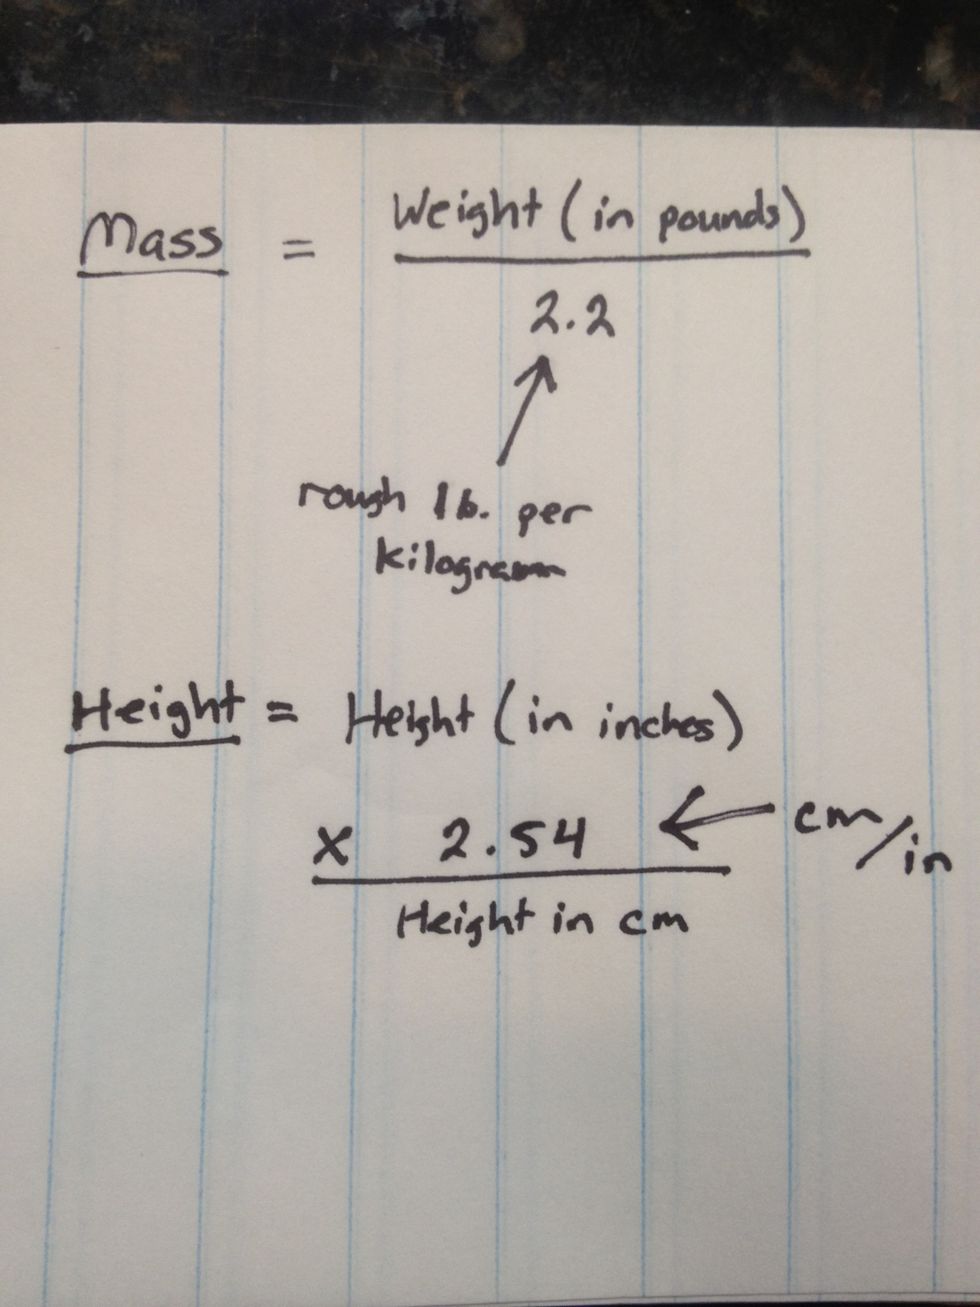 Mass = Weight (in pounds)
2.2
rough lb. per
kilogram
Height = Height (in inches)
x 2.54 cm/in
Height in cm